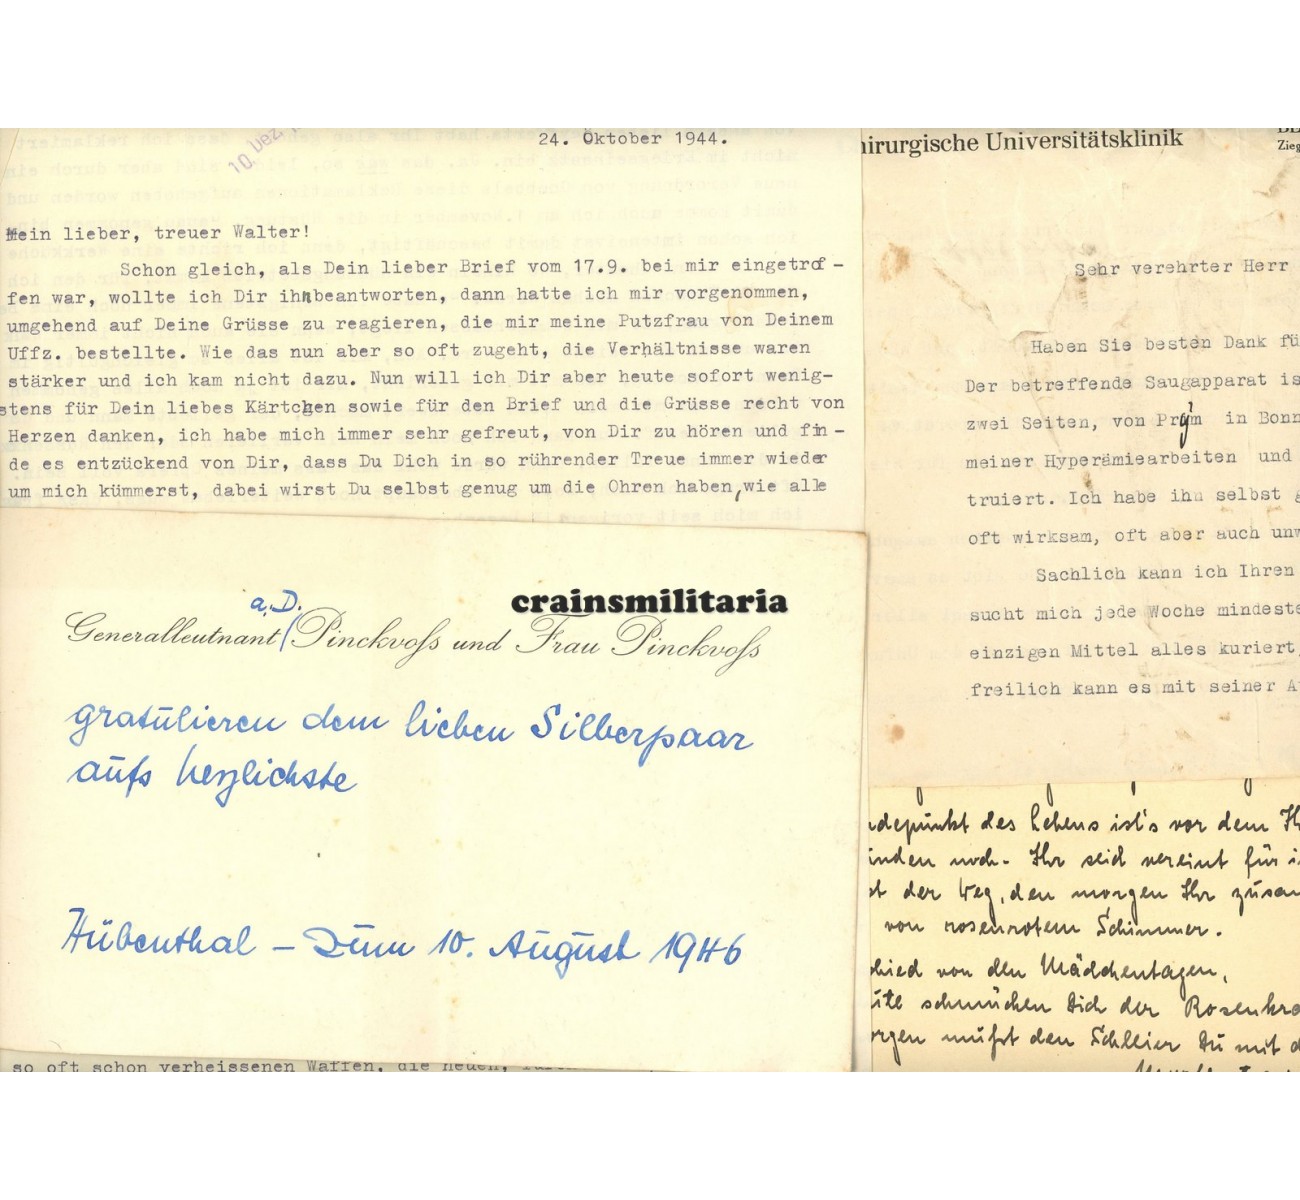 10. Dez.
24. Oktober 1944.
Mein lieber, treuer Walter!
Schon gleich, als Dein lieber Brief vom 17.9. bei mir eingetrof-
fen war, wollte ich Dir ihn beantworten, dann hatte ich mir vorgenommen,
umgehend auf Deine Grüsse zu reagieren, die mir meine Putzfrau von Deinem
Uffz. bestellte. Wie das nun aber so oft zugeht, die Verhältnisse waren
stärker und ich kam nicht dazu. Nun will ich Dir aber heute sofort wenig-
stens für Dein liebes Kärtchen sowie für den Brief und die Grüsse recht von
Herzen danken, ich habe mich immer sehr gefreut, von Dir zu hören und fin-
de es entzückend von Dir, dass Du Dich in so rührender Treue immer wieder
um mich kümmerst, dabei wirst Du selbst genug um die Ohren haben, wie alle
crainsmilitaria
a.D.
Generalleutnant Pinckvoss und Frau Pinckvoss
gratulieren dem lieben Silberpaar
aufs herzlichste
Hübenthal – zum 10. August 1946
so oft schon verheissenen Waffen, die neuen,
hirurgische Universitätsklinik
Zieg
Sehr verehrter Herr
Haben Sie besten Dank fü
Der betreffende Saugapparat is
zwei Seiten, von Prym in Bonn
meiner Hyperämiearbeiten und
truiert. Ich habe ihn selbst g
oft wirksam, oft aber auch unw
Sachlich kann ich Ihren
sucht mich jede Woche mindeste
einzigen Mittel alles kuriert,
freilich kann es mit seiner A
ndepunkt des Lebens ist's vor dem Ih
inden noch. Ihr seid vereint für i
st der Weg, den morgen Ihr zusam
von rosenrotem Schimmer.
chied von den Mädchentagen,
ute schmücken Dich der Rosenkra
orgen mußt den Schleier Du mit d